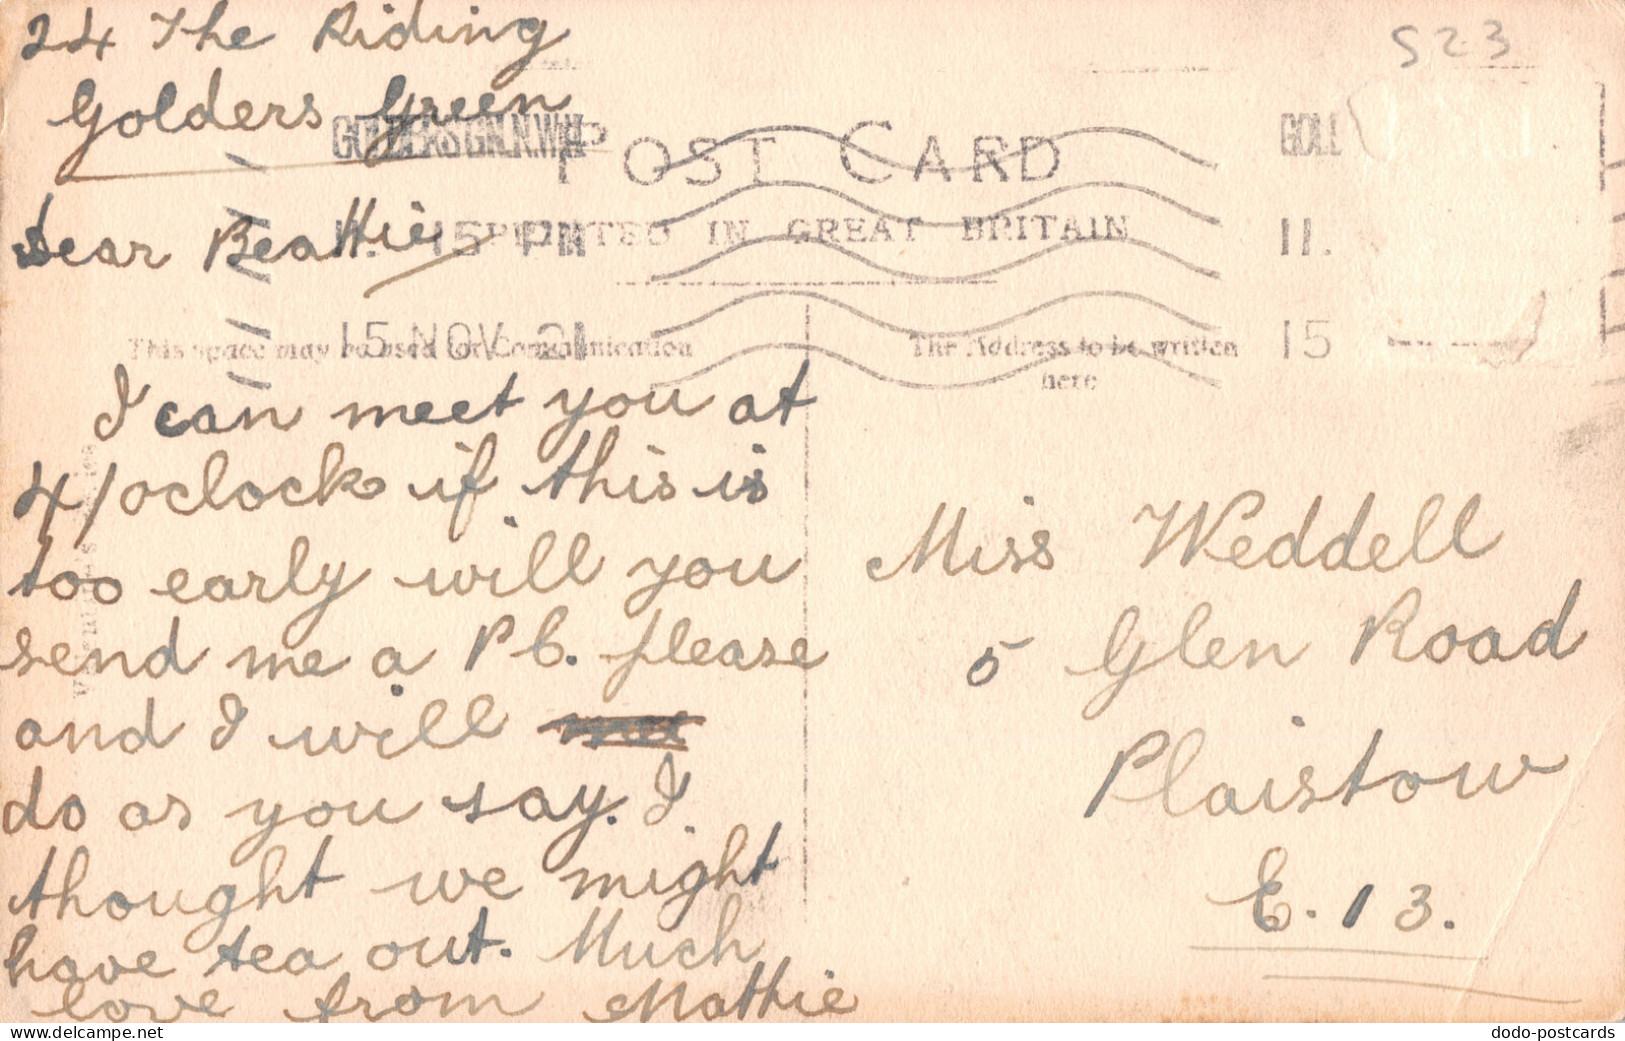 24 The Riding
Golders Green
523
GOLDERS GN. N.W.11
GOLL
POST CARD
Dear Beattie
PRINTED IN GREAT BRITAIN
15 PM
11.
15 NOV 21
15
This space may be used for Communication
The Address to be written
here
I can meet you at
4/oclock if this is
too early will you
send me a P C. please
and I will
do as you say. I
thought we might
have tea out. Much
love from Mattie
Miss Weddell
5 Glen Road
Plaistow
E. 13.
dodo-postcards